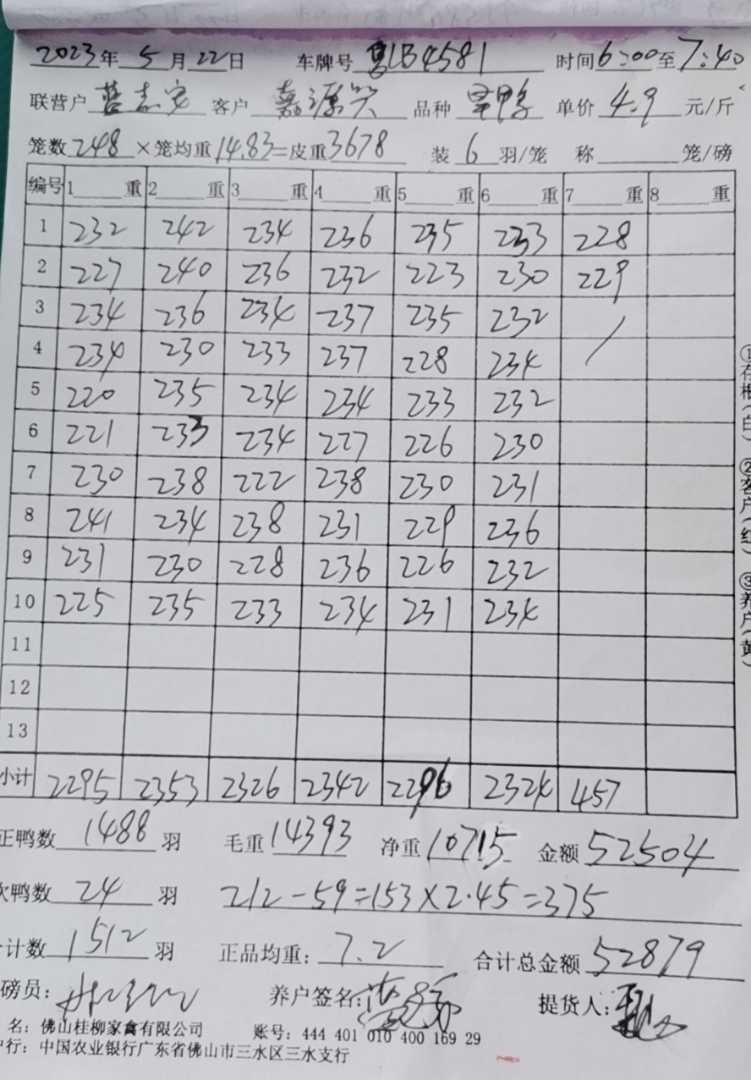 2023年 5月 22日 车牌号 粤LB4581 时间6:00至7:40
联营户 客户 嘉源兴 品种 单价 4.9 元/斤
笼数 248 ×笼均重 14.83=皮重 3678 装 6 羽/笼 称 笼/磅
编号 1 重 2 重 3 重 4 重 5 重 6 重 7 重 8 重
1 232 242 234 236 235 233 228
2 227 240 236 232 223 230 229
3 234 236 234 237 235 232 /
4 234 230 233 237 228 234
5 220 235 234 234 233 232
6 221 233 234 227 226 230
7 230 238 222 238 230 231
8 241 234 238 231 229 236
9 231 230 228 236 226 232
10 225 235 233 234 231 234
11
12
13
小计 2295 2353 2326 2342 2296 2324 457
正鸭数 1488 羽 毛重 14393 净重 10715 金额 52504
次鸭数 24 羽 212-59=153×2.45=375
计数 1512 羽 正品均重: 7.2 合计总金额 52879
磅员: 养户签名: 提货人:
名: 佛山桂柳家禽有限公司 账号: 444 401 010 400 169 29
行: 中国农业银行广东省佛山市三水区三水支行
①存根(白) ②客户(红) ③养户(黄)